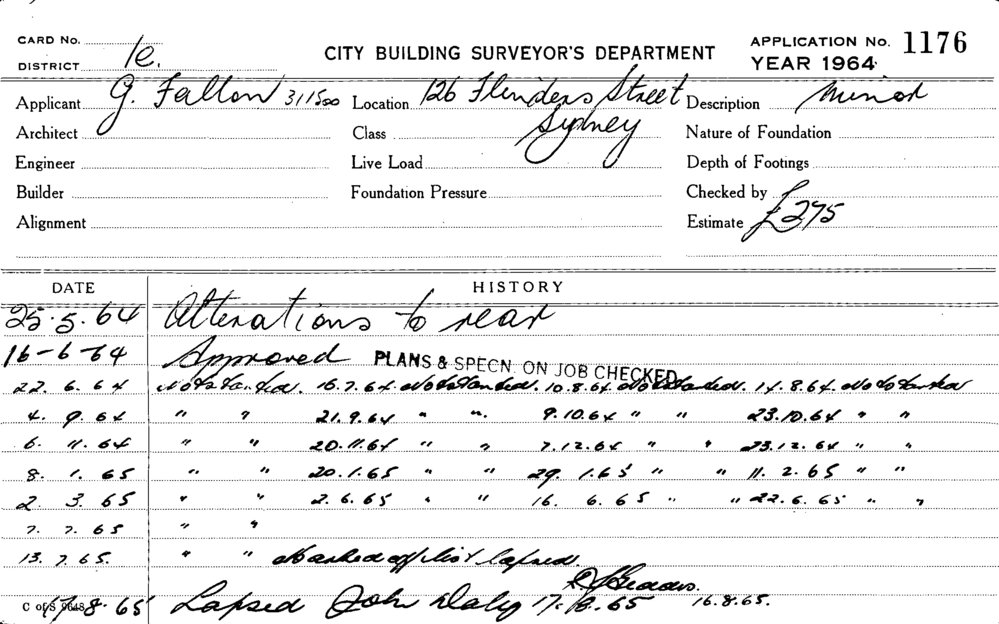 CARD No.
DISTRICT 1e.
CITY BUILDING SURVEYOR'S DEPARTMENT
APPLICATION No. 1176
YEAR 1964
Applicant G. Fallon 311500 Location 126 Flinders Street Description Minor
Architect Class Sydney Nature of Foundation
Engineer Live Load Depth of Footings
Builder Foundation Pressure Checked by
Alignment Estimate £275
DATE HISTORY
25.5.64 Alterations to rear
16-6-64 Approved PLANS & SPECN. ON JOB CHECKED
22. 6. 64 Not started. 16.7.64. Not started. 10.8.64. Not started. 14.8.64. Not started
4. 9. 64 " " 21.9.64 " " 9.10.64 " " 23.10.64 " "
6. 11. 64 " " 20.11.64 " " 7.12.64 " " 23.12.64 " "
8. 1. 65 " " 20.1.65 " " 29. 1.65 " " 11. 2.65 " "
2. 3. 65 " " 2.6.65 " " 16. 6. 65 " " 22.6.65 " "
7. 7. 65 " "
13. 7. 65. " " Marked off list lapsed.
C of S 9648 17.8.65 Lapsed John Daly 17.8.65 16.8.65.